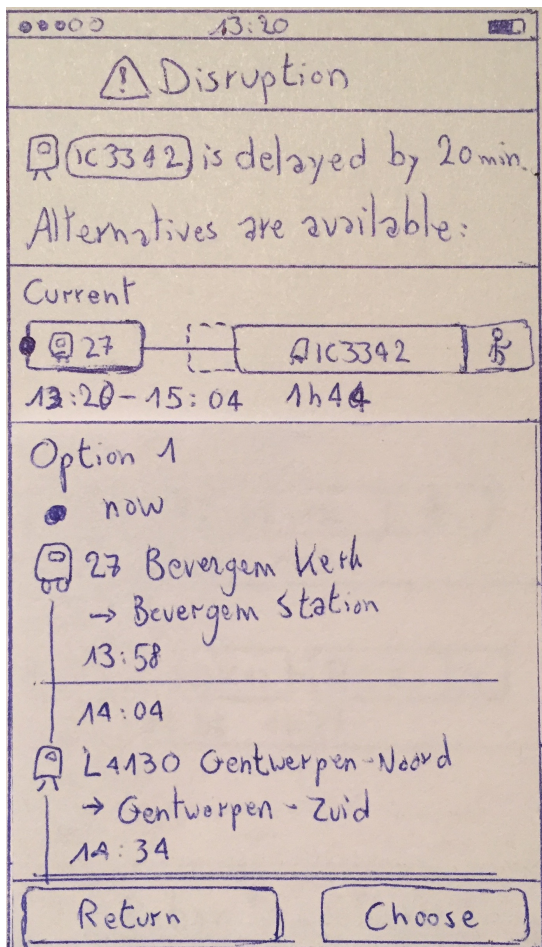 13:20
Disruption
IC3342 is delayed by 20 min.
Alternatives are available:
Current
27 IC3342
13:20-15:04 1h44
Option 1
now
27 Bevergem Kerk
→ Bevergem Station
13:58
14:04
L4130 Gentwerpen-Noord
→ Gentwerpen-Zuid
14:34
Return Choose